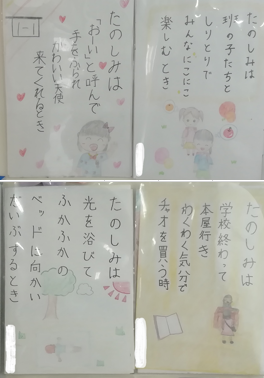 たのしみは
「おーい」と呼んで
手をふられ
かわいい天使
来てくれるとき
たのしみは
孫の子たちと
しりとりで
みんなにこにこ
楽しむとき
たのしみは
光を浴びて
ふかふかの
ベッドに向かい
だいぶするとき
たのしみは
学校終わって
本屋行き
わくわく気分で
チャオを買う時